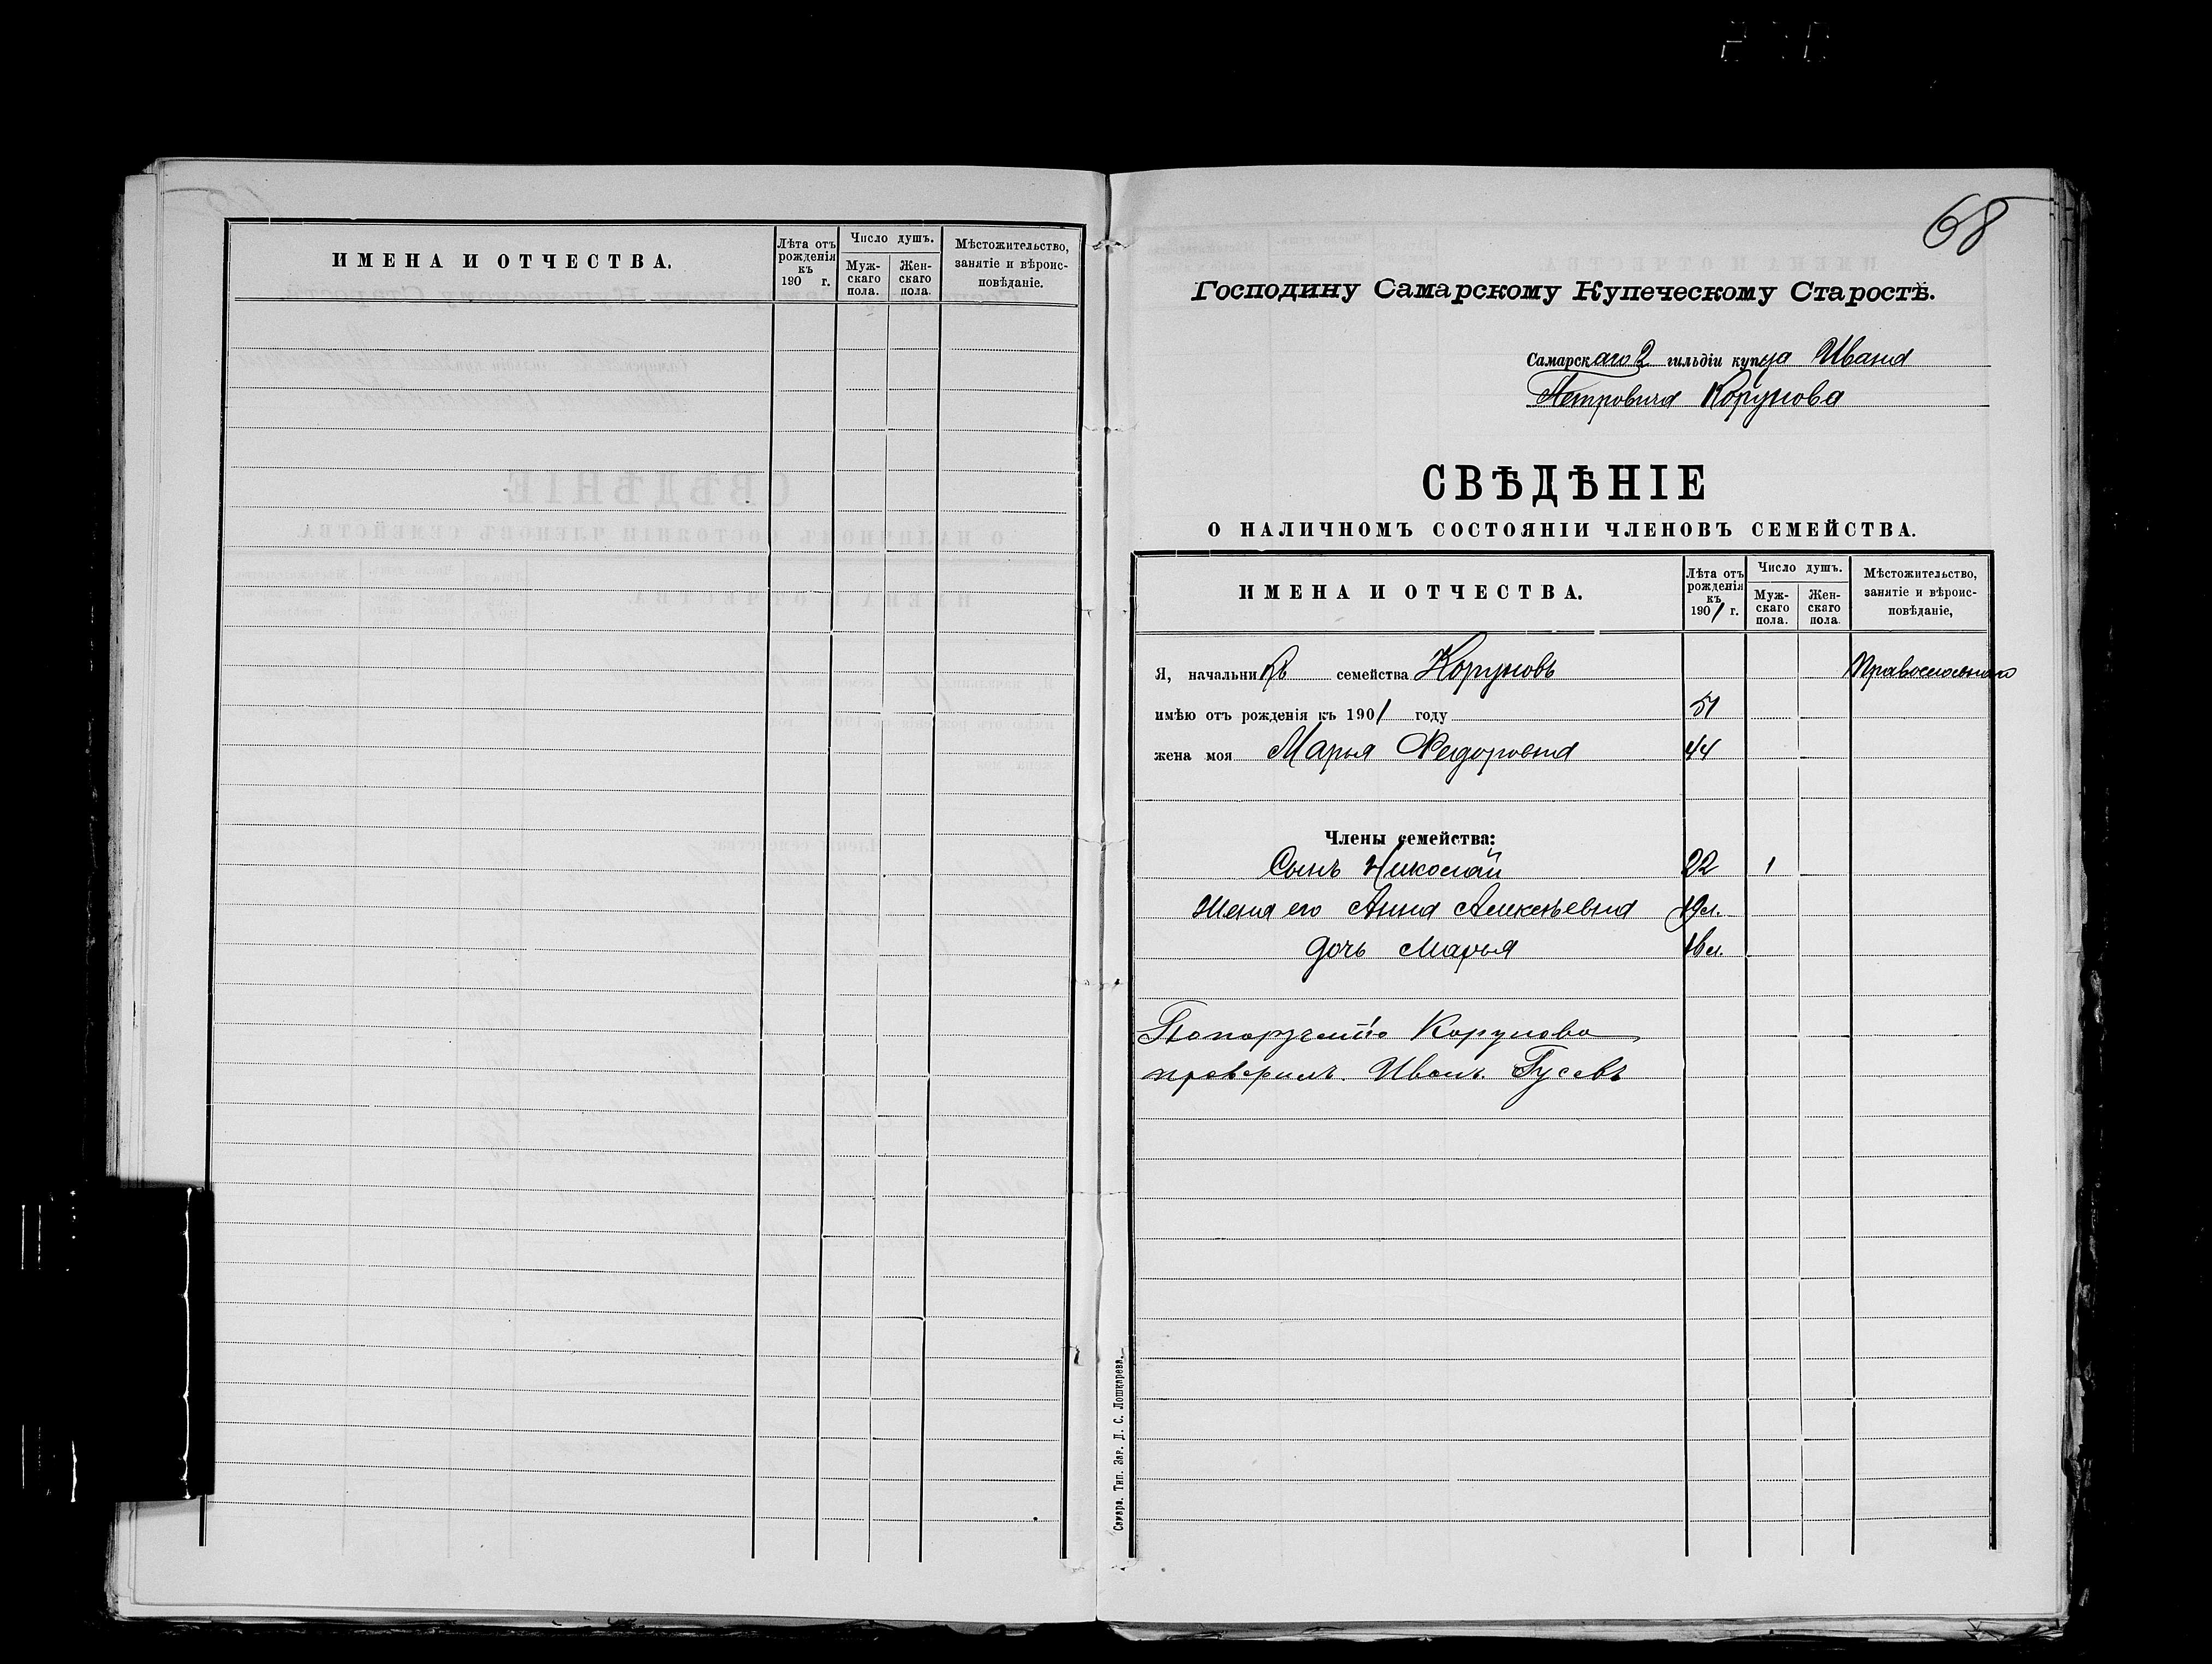 ИМЕНА И ОТЧЕСТВА.
Лѣта отъ рожденія къ 190 г.
Число душъ.
Муж-скаго пола.
Жен-скаго пола.
Мѣстожительство, занятіе и вѣроис-повѣданіе.
68
Господину Самарскому Купеческому Старостѣ.
Самарскаго 2 гильдіи купца Ивана
Петровича Корунова
СВѢДѢНІЕ
О НАЛИЧНОМЪ СОСТОЯНІИ ЧЛЕНОВЪ СЕМЕЙСТВА.
ИМЕНА И ОТЧЕСТВА.
Лѣта отъ рожденія къ 1901 г.
Число душъ.
Муж-скаго пола.
Жен-скаго пола.
Мѣстожительство, занятіе и вѣроис-повѣданіе,
Я, начальникъ семейства Коруновъ Православнаго
имѣю отъ рожденія къ 1901 году 51
жена моя Марья Федоровна 44
Члены семейства:
Сынъ Николай 22 1
Жена его Анна Алексѣевна 19 л.
дочь Марья 16 л.
По порученію Корунова
проверилъ. Иванъ Гусевъ
Самара. Тип. Зар. Д. С. Лошкарева.